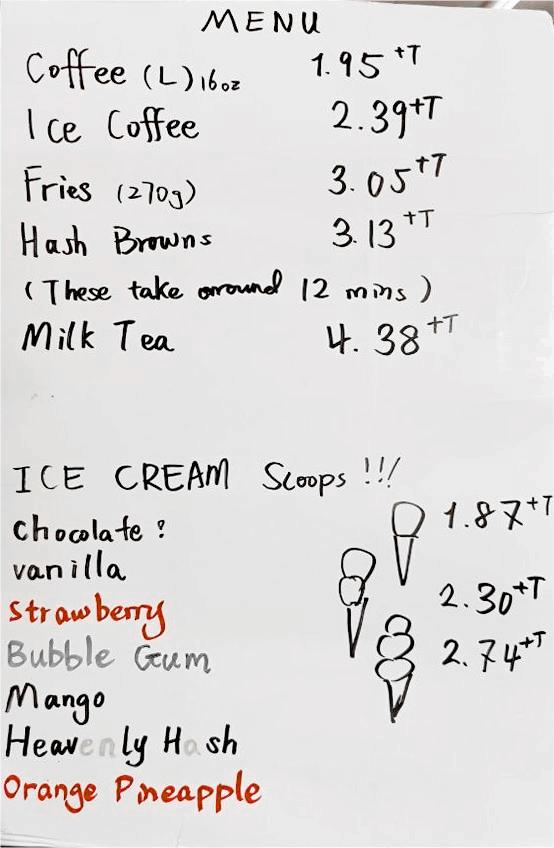 MENU
Coffee (L) 16oz 1.95 +T
Ice Coffee 2.39 +T
Fries (270g) 3.05 +T
Hash Browns 3.13 +T
(These take arround 12 mins)
Milk Tea 4.38 +T
ICE CREAM Scoops !!!
Chocolate ?
vanilla
Strawberry
Bubble Gum
Mango
Heavenly Hash
Orange Pineapple
1.87 +T
2.30 +T
2.74 +T